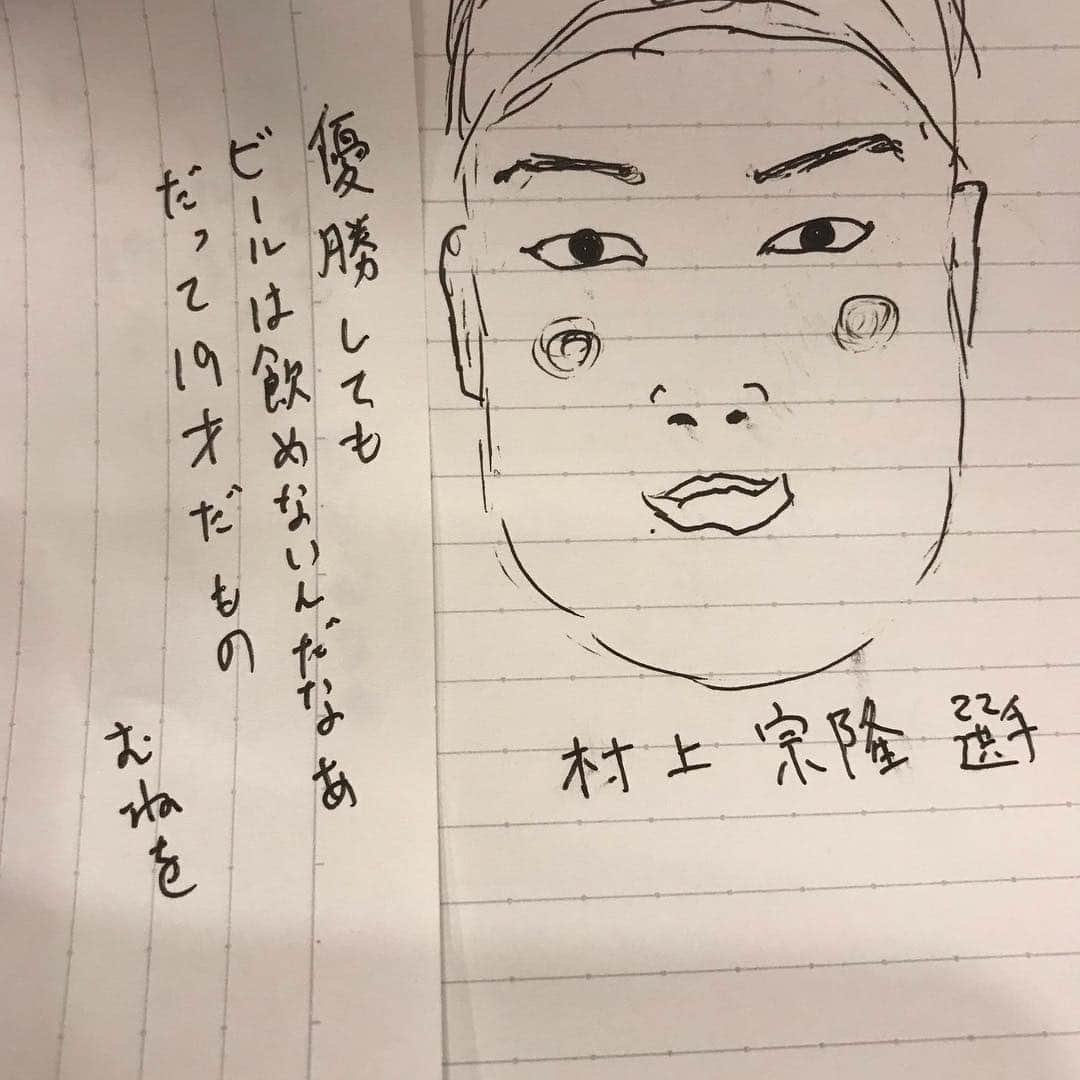 優勝しても
ビールは飲めないんだなあ
だって19才だもの
むねを
村上宗隆選手